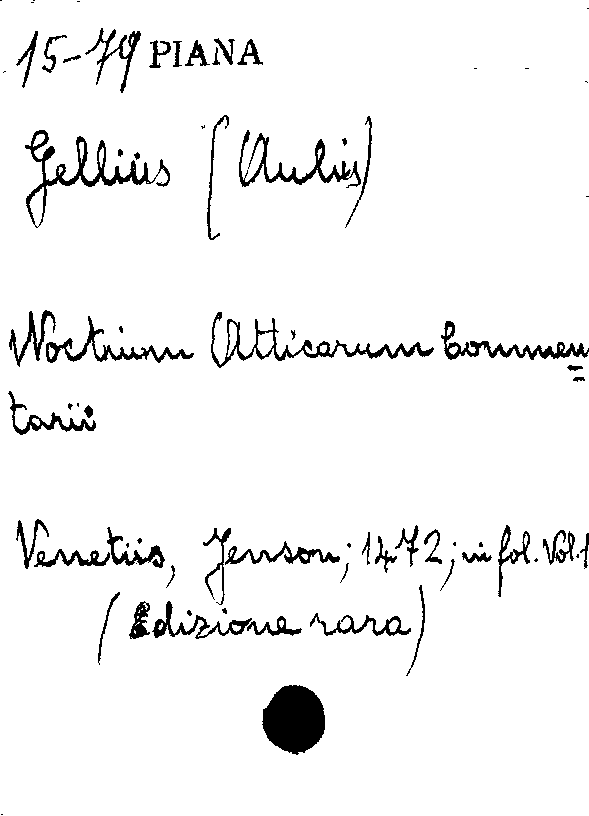 15-79 PIANA
Gellius (Aulus)
Noctium Atticarum Commen=
tarii
Venetiis, Jenson; 1472; in fol. Vol. 1
(Edizione rara)